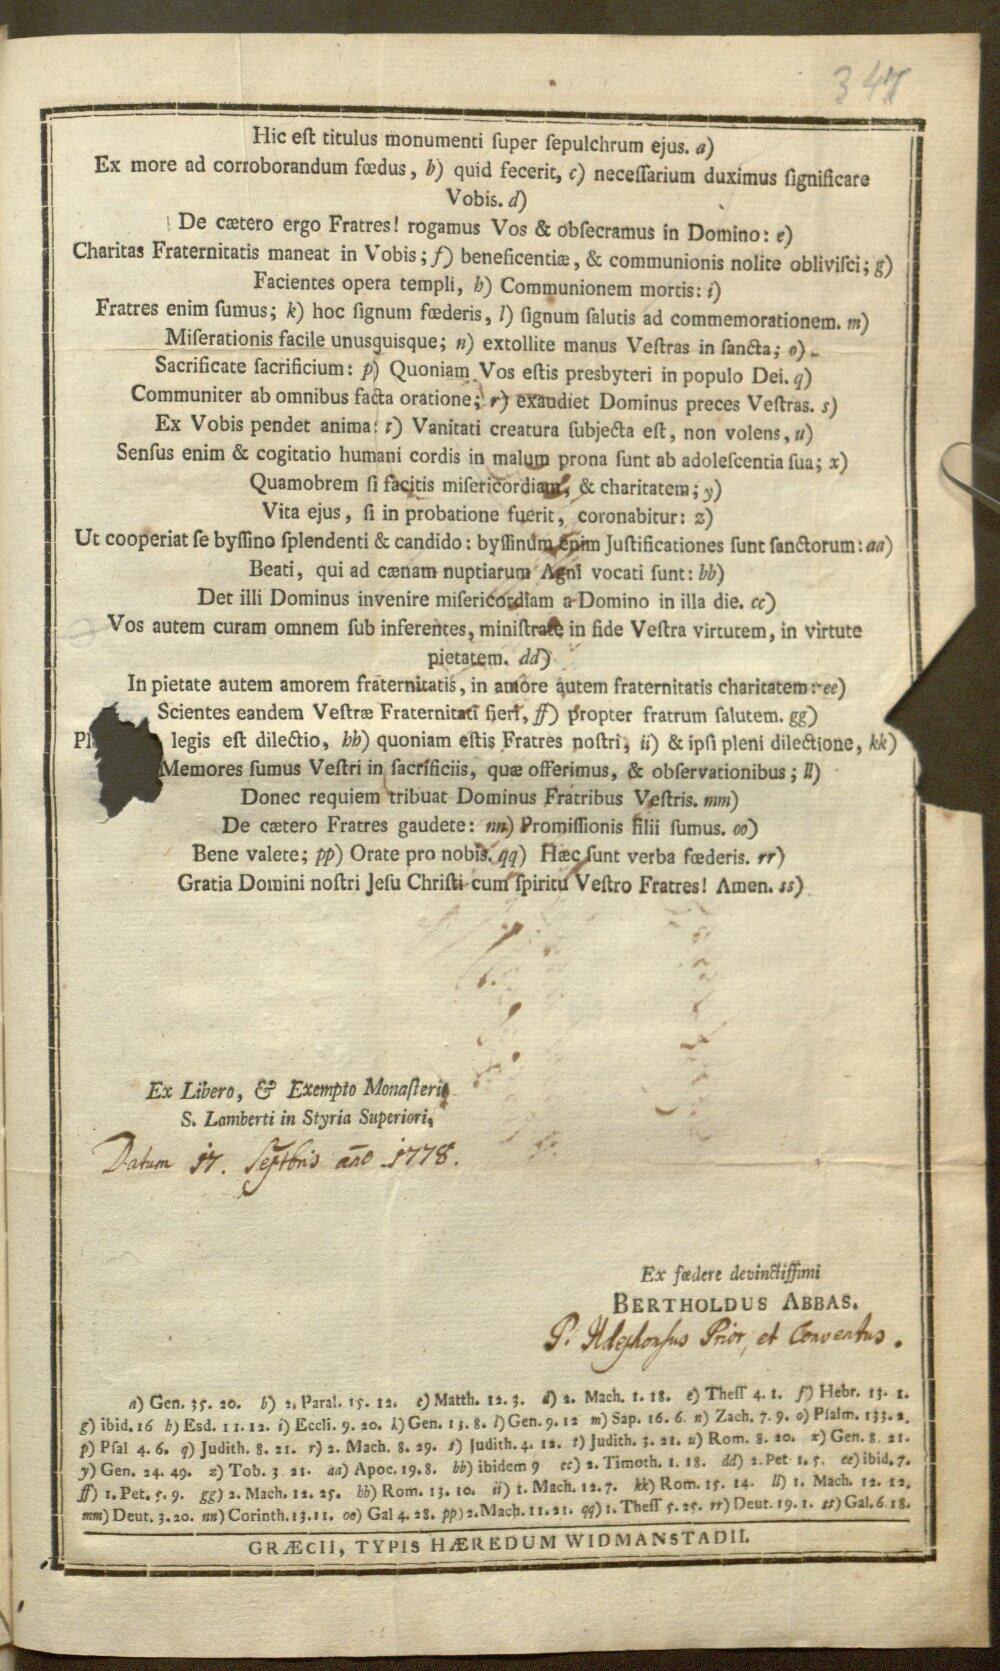 347
Hic est titulus monumenti super sepulchrum ejus. a)
Ex more ad corroborandum fœdus, b) quid fecerit, c) necessarium duximus significare
Vobis. d)
De cætero ergo Fratres! rogamus Vos & obsecramus in Domino: e)
Charitas Fraternitatis maneat in Vobis; f) beneficentiæ, & communionis nolite oblivisci; g)
Facientes opera templi, h) Communionem mortis: i)
Fratres enim sumus; k) hoc signum fœderis, l) signum salutis ad commemorationem. m)
Miserationis facile unusquisque; n) extollite manus Vestras in sancta; o)
Sacrificate sacrificium: p) Quoniam Vos estis presbyteri in populo Dei. q)
Communiter ab omnibus facta oratione; r) exaudiet Dominus preces Vestras. s)
Ex Vobis pendet anima: t) Vanitati creatura subjecta est, non volens, u)
Sensus enim & cogitatio humani cordis in malum prona sunt ab adolescentia sua; x)
Quamobrem si facitis misericordiam, & charitatem; y)
Vita ejus, si in probatione fuerit, coronabitur: z)
Ut cooperiat se byssino splendenti & candido: byssinum enim Justificationes sunt sanctorum: aa)
Beati, qui ad cænam nuptiarum Agni vocati sunt: bb)
Det illi Dominus invenire misericordiam a Domino in illa die. cc)
Vos autem curam omnem sub inferentes, ministrate in fide Vestra virtutem, in virtute
pietatem. dd)
In pietate autem amorem fraternitatis, in amore autem fraternitatis charitatem: ee)
Scientes eandem Vestræ Fraternitati fieri, ff) propter fratrum salutem. gg)
legis est dilectio, hh) quoniam estis Fratres nostri, ii) & ipsi pleni dilectione, kk)
Memores sumus Vestri in sacrificiis, quæ offerimus, & observationibus; ll)
Donec requiem tribuat Dominus Fratribus Vestris. mm)
De cætero Fratres gaudete: nn) Promissionis filii sumus. oo)
Bene valete; pp) Orate pro nobis. qq) Hæc sunt verba fœderis. rr)
Gratia Domini nostri Jesu Christi cum spiritu Vestro Fratres! Amen. ss)
Ex Libero, & Exempto Monasterio
S. Lamberti in Styria Superiori.
Datum 17. Septbris año 1778.
Ex fœdere devinctissimi
BERTHOLDUS ABBAS.
P. Ildephonsus Prior, et Conventus.
a) Gen. 35. 20. b) 2. Paral. 15. 12. c) Matth. 12. 3. d) 2. Mach. 1. 18. e) Thess 4. 1. f) Hebr. 13. 1.
g) ibid. 16 h) Esd. 11. 12. i) Eccli. 9. 20. k) Gen. 13. 8. l) Gen. 9. 12 m) Sap. 16. 6. n) Zach. 7. 9. o) Psalm. 133. 2.
p) Psal 4. 6. q) Judith. 8. 21. r) 2. Mach. 8. 29. s) Judith. 4. 12. t) Judith. 3. 21. u) Rom. 8. 20. x) Gen. 8. 21.
y) Gen. 24. 49. z) Tob. 3 21. aa) Apoc. 19. 8. bb) ibidem 9 cc) 2. Timoth. 1. 18. dd) 2. Pet 1. 5. ee) ibid. 7.
ff) 1. Pet. 5. 9. gg) 2. Mach. 12. 25. hh) Rom. 13. 10. ii) 1. Mach. 12. 7. kk) Rom. 15. 14. ll) 1. Mach. 12. 12.
mm) Deut. 3. 20. nn) Corinth. 13. 11. oo) Gal 4. 28. pp) 2. Mach. 11. 21. qq) 1. Thess 5. 25. rr) Deut. 19. 1. ss) Gal. 6. 18.
GRÆCII, TYPIS HÆREDUM WIDMANSTADII.